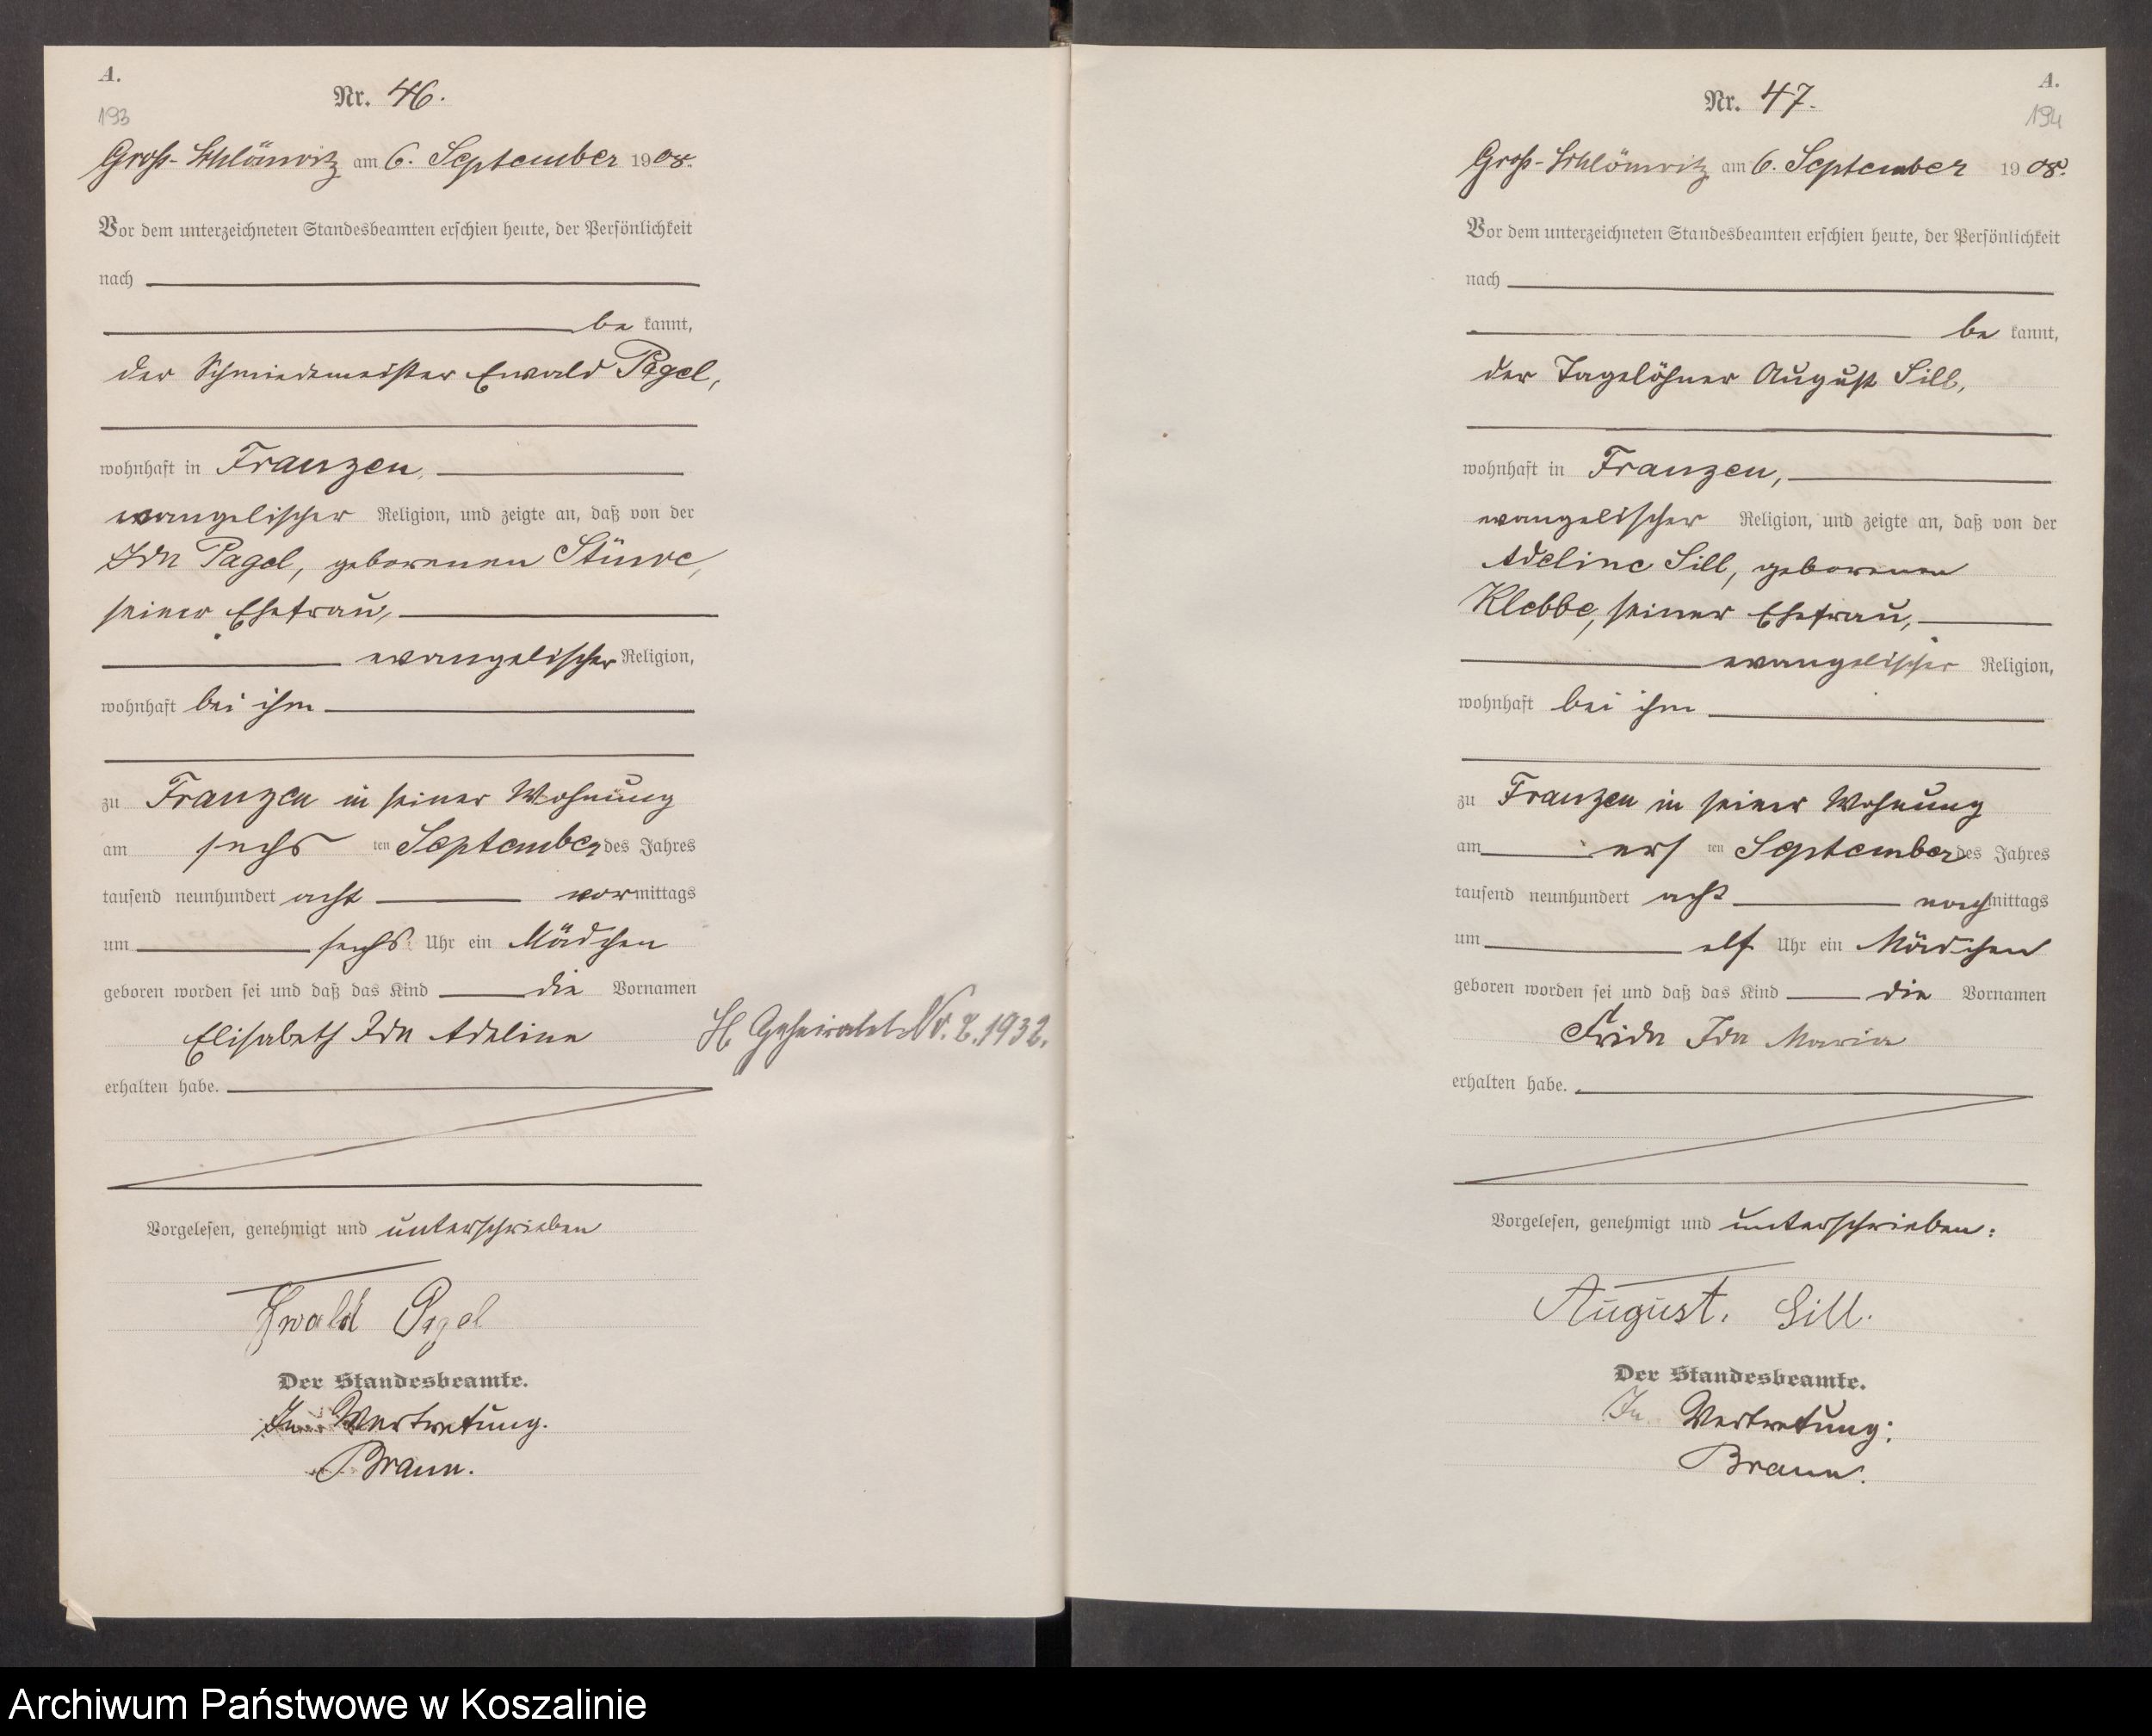 A.
193
Nr. 46.
Groß-Schlönwitz am 6. September 1908.
Vor dem unterzeichneten Standesbeamten erschien heute, der Persönlichkeit
nach
be kannt,
der Schmiedemeister Ewald Pagel,
wohnhaft in Franzen,
evangelischer Religion, und zeigte an, daß von der
Ida Pagel, geborenen Stüwe,
seiner Ehefrau,
evangelischer Religion,
wohnhaft bei ihm
zu Franzen in seiner Wohnung
am sechs ten September des Jahres
tausend neunhundert acht vormittags
um sechs Uhr ein Mädchen
geboren worden sei und daß das Kind die Vornamen
Elisabeth Ida Adeline
erhalten habe.
Vorgelesen, genehmigt und unterschrieben
Ewald Pagel
Der Standesbeamte.
In Vertretung.
Braun.
H. Geheiratet Nr. 2. 1932.
A.
194
Nr. 47.
Groß-Schlönwitz am 6. September 1908.
Vor dem unterzeichneten Standesbeamten erschien heute, der Persönlichkeit
nach
be kannt,
der Tagelöhner August Sill,
wohnhaft in Franzen,
evangelischer Religion, und zeigte an, daß von der
Adeline Sill, geborenen
Klebbe, seiner Ehefrau,
evangelischer Religion,
wohnhaft bei ihm
zu Franzen in seiner Wohnung
am ers ten September des Jahres
tausend neunhundert acht nachmittags
um elf Uhr ein Mädchen
geboren worden sei und daß das Kind die Vornamen
Frida Ida Maria
erhalten habe.
Vorgelesen, genehmigt und unterschrieben:
August. Sill.
Der Standesbeamte.
In Vertretung:
Braun.
Archiwum Państwowe w Koszalinie